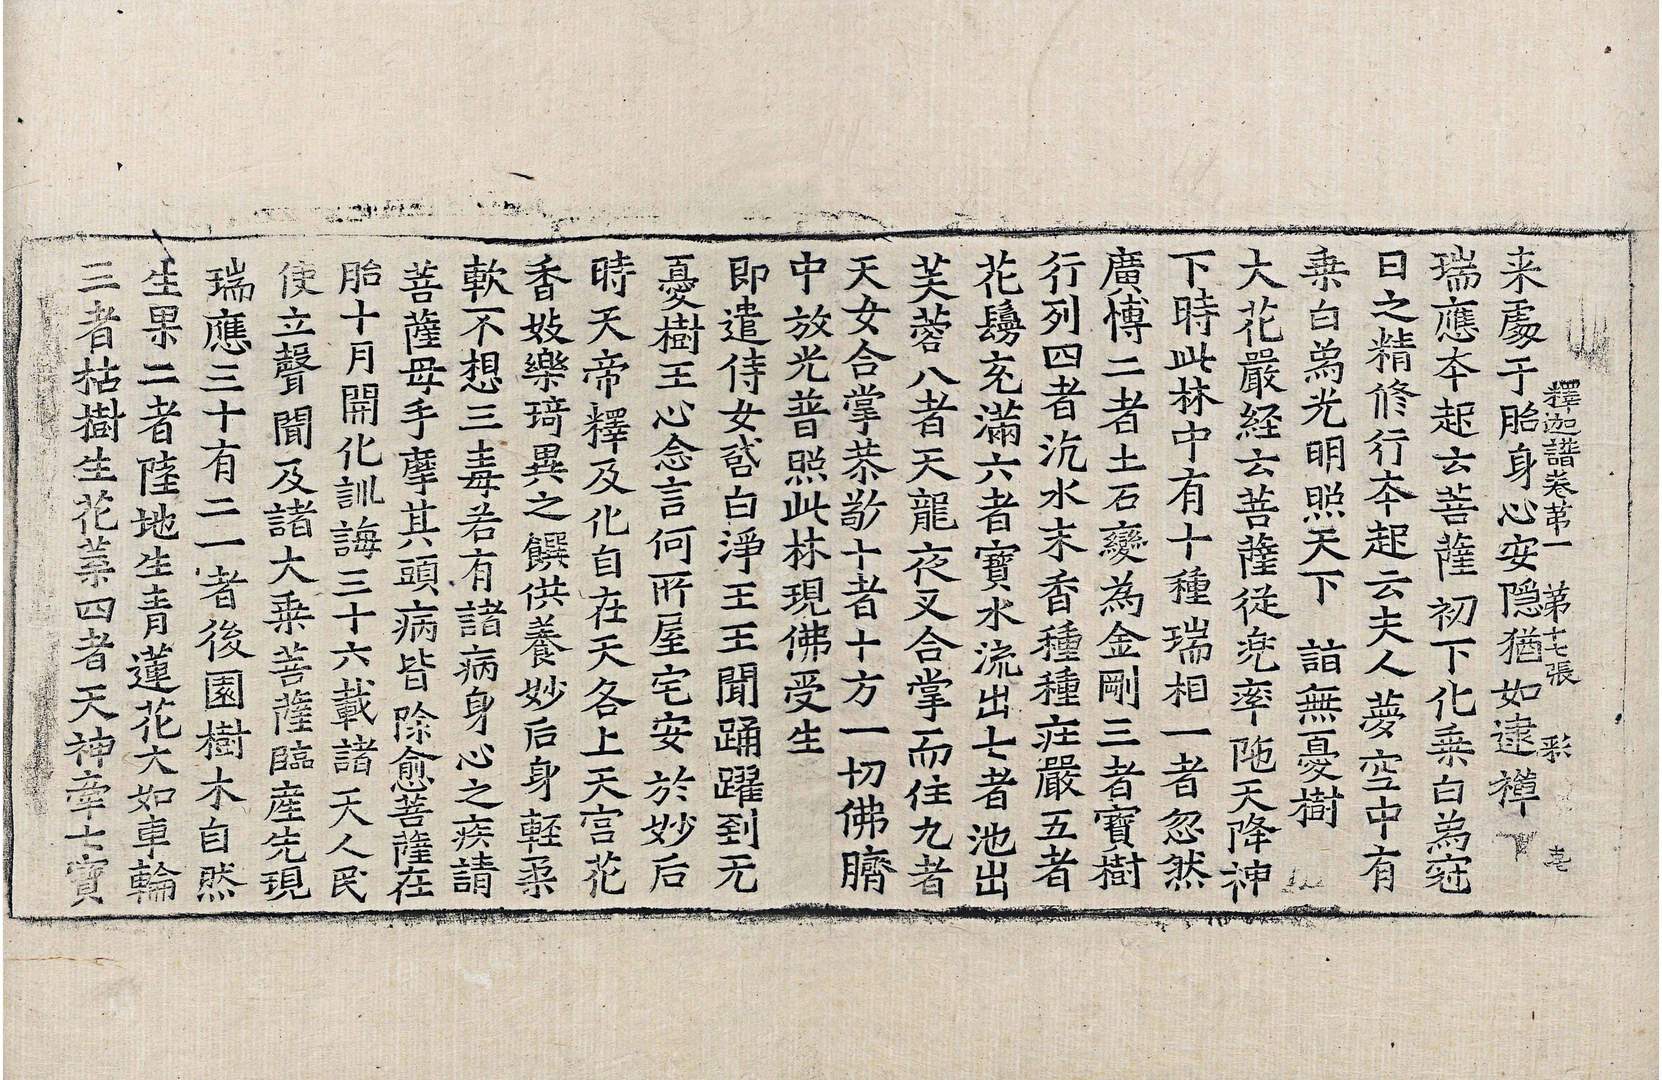 釋迦譜卷苐一 苐十七張 彩
来處于胎身心安隱猶如逮禅
瑞應夲起云菩薩初下化乗白為冠
日之精修行夲起云夫人夢空中有
乗白為光明照天下 詣無憂樹
大花嚴経云菩薩従兠率陁天降神
下時此林中有十種瑞相一者忽然
廣博二者土石變為金剛三者寶樹
行列四者沉水末香種種莊嚴五者
花鬘充滿六者寶水流出七者池出
芙蓉八者天龍夜叉合掌而住九者
天女合掌恭敬十者十方一切佛臍
中放光普照此林現佛受生
即遣侍女啓白淨王王聞踊躍到无
憂樹王心念言何所屋宅安於妙后
時天帝釋及化自在天各上天宫花
香妓樂琦異之饌供養妙后身輕柔
軟不想三毒若有諸病身心之疾請
菩薩母手摩其頭病皆除愈菩薩在
胎十月開化訓誨三十六載諸天人民
使立聲聞及諸大乗菩薩臨産先現
瑞應三十有二一者後園樹木自然
生果二者陸地生青蓮花大如車輪
三者枯樹生花葉四者天神牽七寶